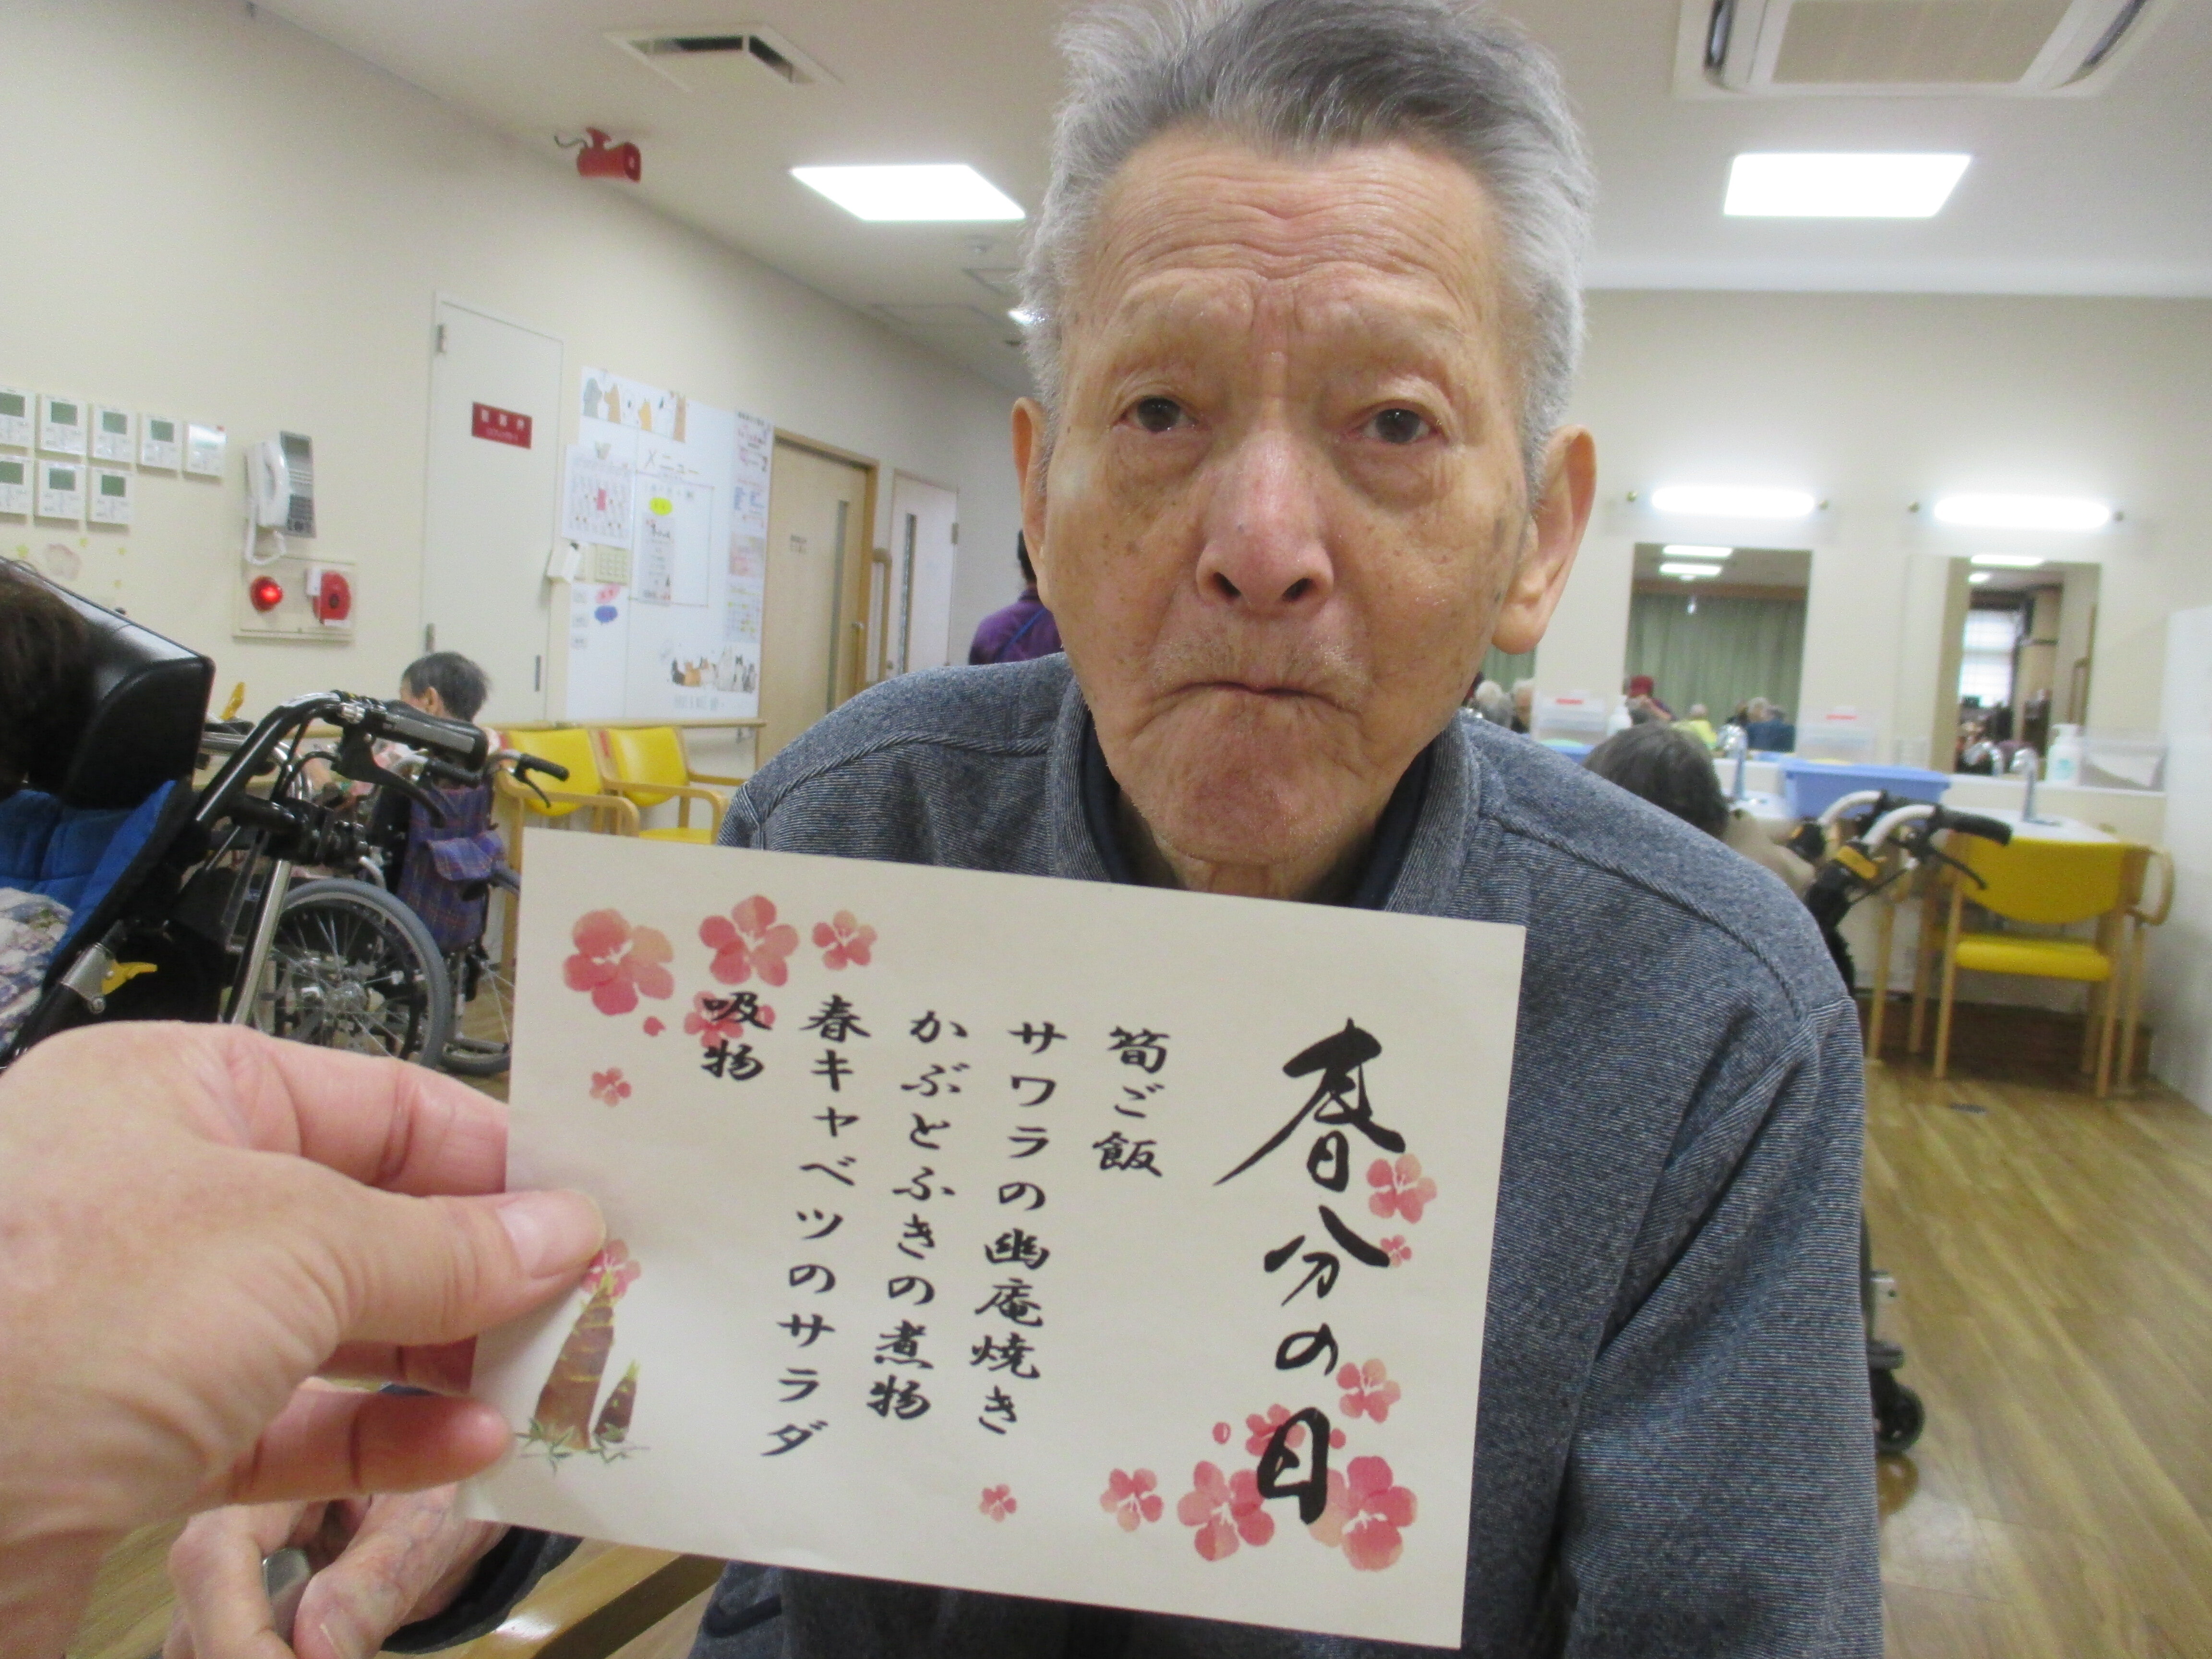 春分の日
筍ご飯
サワラの幽庵焼き
かぶとふきの煮物
春キャベツのサラダ
吸物
メニュー